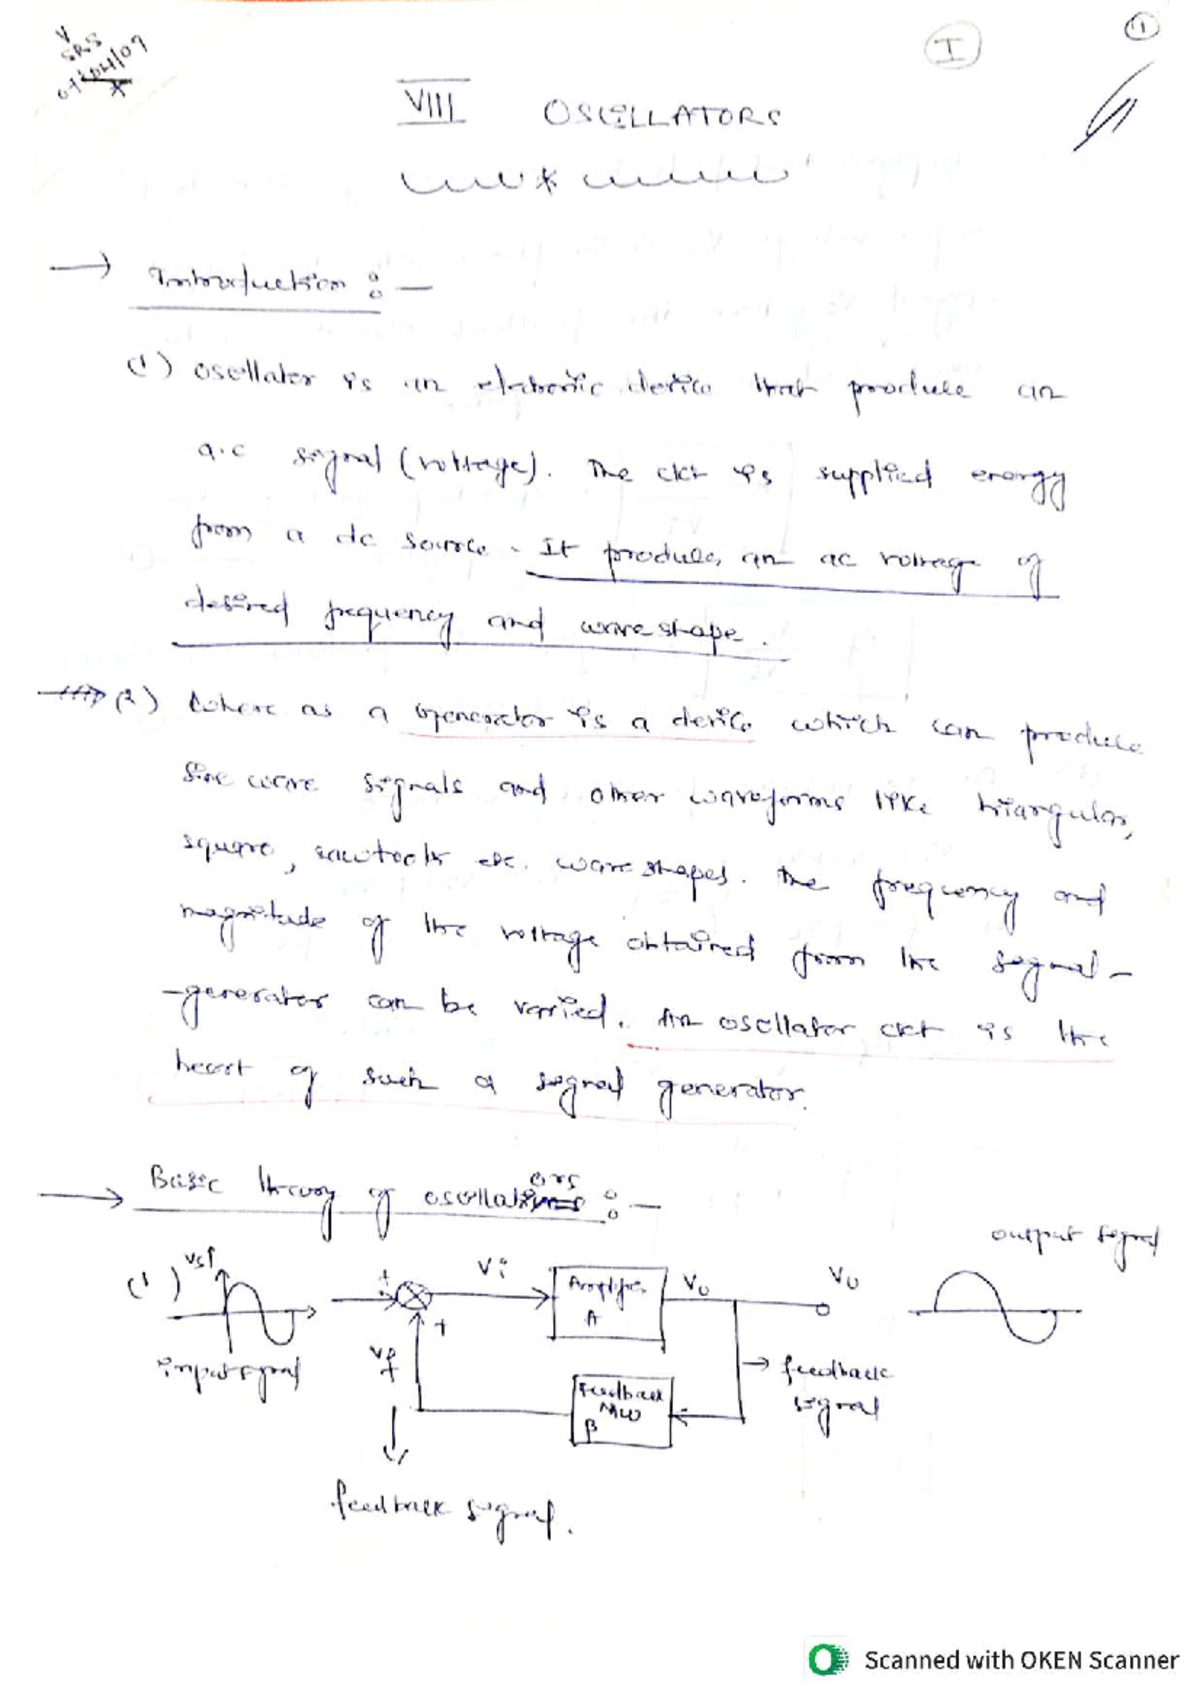 V
SRS
07/04/09
I
1
VIII OSCILLATORS
→ Introduction :—
(1) oscillator is an electronic device that produce an
a.c signal (voltage). The ckt is supplied energy
from a dc source. It produces an ac voltage of
desired frequency and wave shape.
(2) Where as a Generator is a device which can produce
Sine wave signals and other waveforms like triangular,
square, sawtooth etc. wave shapes. The frequency and
magnitude of the voltage obtained from the signal-
-generator can be varied. An oscillator ckt is the
heart of such a signal generator.
→ Basic theory of oscillators :—
output signal
(1) Vs↑ + Vi Amplifier A Vo Vo
input signal
+
Vf
Feedback N/W β
→ feedback
signal
feedback signal.
Scanned with OKEN Scanner